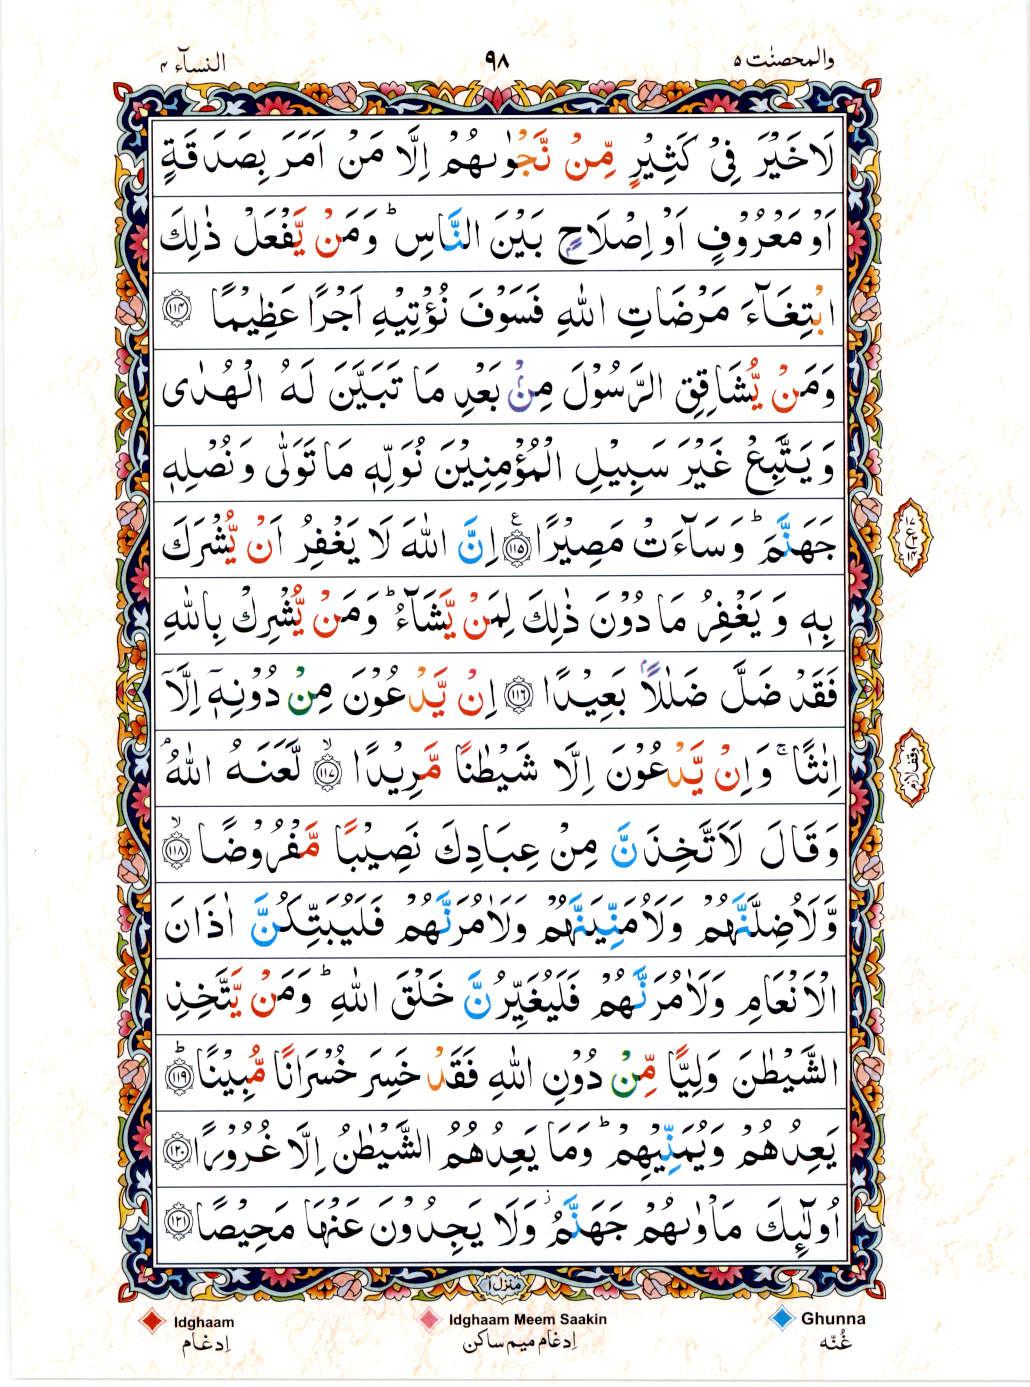 والمحصنٰت ٥
٩٨
النسآء ٤
لَاخَيْرَ فِىْ كَثِيْرٍ مِّنْ نَّجْوٰىهُمْ اِلَّا مَنْ اَمَرَ بِصَدَقَةٍ
اَوْ مَعْرُوْفٍ اَوْ اِصْلَاحٍۭ بَيْنَ النَّاسِ ؕ وَمَنْ يَّفْعَلْ ذٰلِكَ
ابْتِغَآءَ مَرْضَاتِ اللّٰهِ فَسَوْفَ نُؤْتِيْهِ اَجْرًا عَظِيْمًا ﴿۱۱۴﴾
وَمَنْ يُّشَاقِقِ الرَّسُوْلَ مِنْۢ بَعْدِ مَا تَبَيَّنَ لَهُ الْهُدٰى
وَيَتَّبِعْ غَيْرَ سَبِيْلِ الْمُؤْمِنِيْنَ نُوَلِّهٖ مَا تَوَلّٰى وَنُصْلِهٖ
جَهَنَّمَ ؕ وَسَآءَتْ مَصِيْرًا ﴿۱۱۵﴾ ع اِنَّ اللّٰهَ لَا يَغْفِرُ اَنْ يُّشْرَكَ
بِهٖ وَيَغْفِرُ مَا دُوْنَ ذٰلِكَ لِمَنْ يَّشَآءُ ؕ وَمَنْ يُّشْرِكْ بِاللّٰهِ
فَقَدْ ضَلَّ ضَلٰلًاۢ بَعِيْدًا ﴿۱۱۶﴾ اِنْ يَّدْعُوْنَ مِنْ دُوْنِهٖۤ اِلَّاۤ
اِنٰثًا ۚ وَاِنْ يَّدْعُوْنَ اِلَّا شَيْطٰنًا مَّرِيْدًا ﴿۱۱۷﴾ ۙ لَّعَنَهُ اللّٰهُ ۘ
وقف لازم
وَقَالَ لَاَتَّخِذَنَّ مِنْ عِبَادِكَ نَصِيْبًا مَّفْرُوْضًا ﴿۱۱۸﴾ ۙ
وَّلَاُضِلَّنَّهُمْ وَلَاُمَنِّيَنَّهُمْ وَلَاٰمُرَنَّهُمْ فَلَيُبَتِّكُنَّ اٰذَانَ
الْاَنْعَامِ وَلَاٰمُرَنَّهُمْ فَلَيُغَيِّرُنَّ خَلْقَ اللّٰهِ ؕ وَمَنْ يَّتَّخِذِ
الشَّيْطٰنَ وَلِيًّا مِّنْ دُوْنِ اللّٰهِ فَقَدْ خَسِرَ خُسْرَانًا مُّبِيْنًا ﴿۱۱۹﴾ ؕ
يَعِدُهُمْ وَيُمَنِّيْهِمْ ؕ وَمَا يَعِدُهُمُ الشَّيْطٰنُ اِلَّا غُرُوْرًا ﴿۱۲۰﴾
اُولٰٓئِكَ مَاْوٰىهُمْ جَهَنَّمُ ؗ وَلَا يَجِدُوْنَ عَنْهَا مَحِيْصًا ﴿۱۲۱﴾
منزل ۱
Idghaam Idghaam Meem Saakin Ghunna
اِدغام اِدغام میم ساکن غُنّه